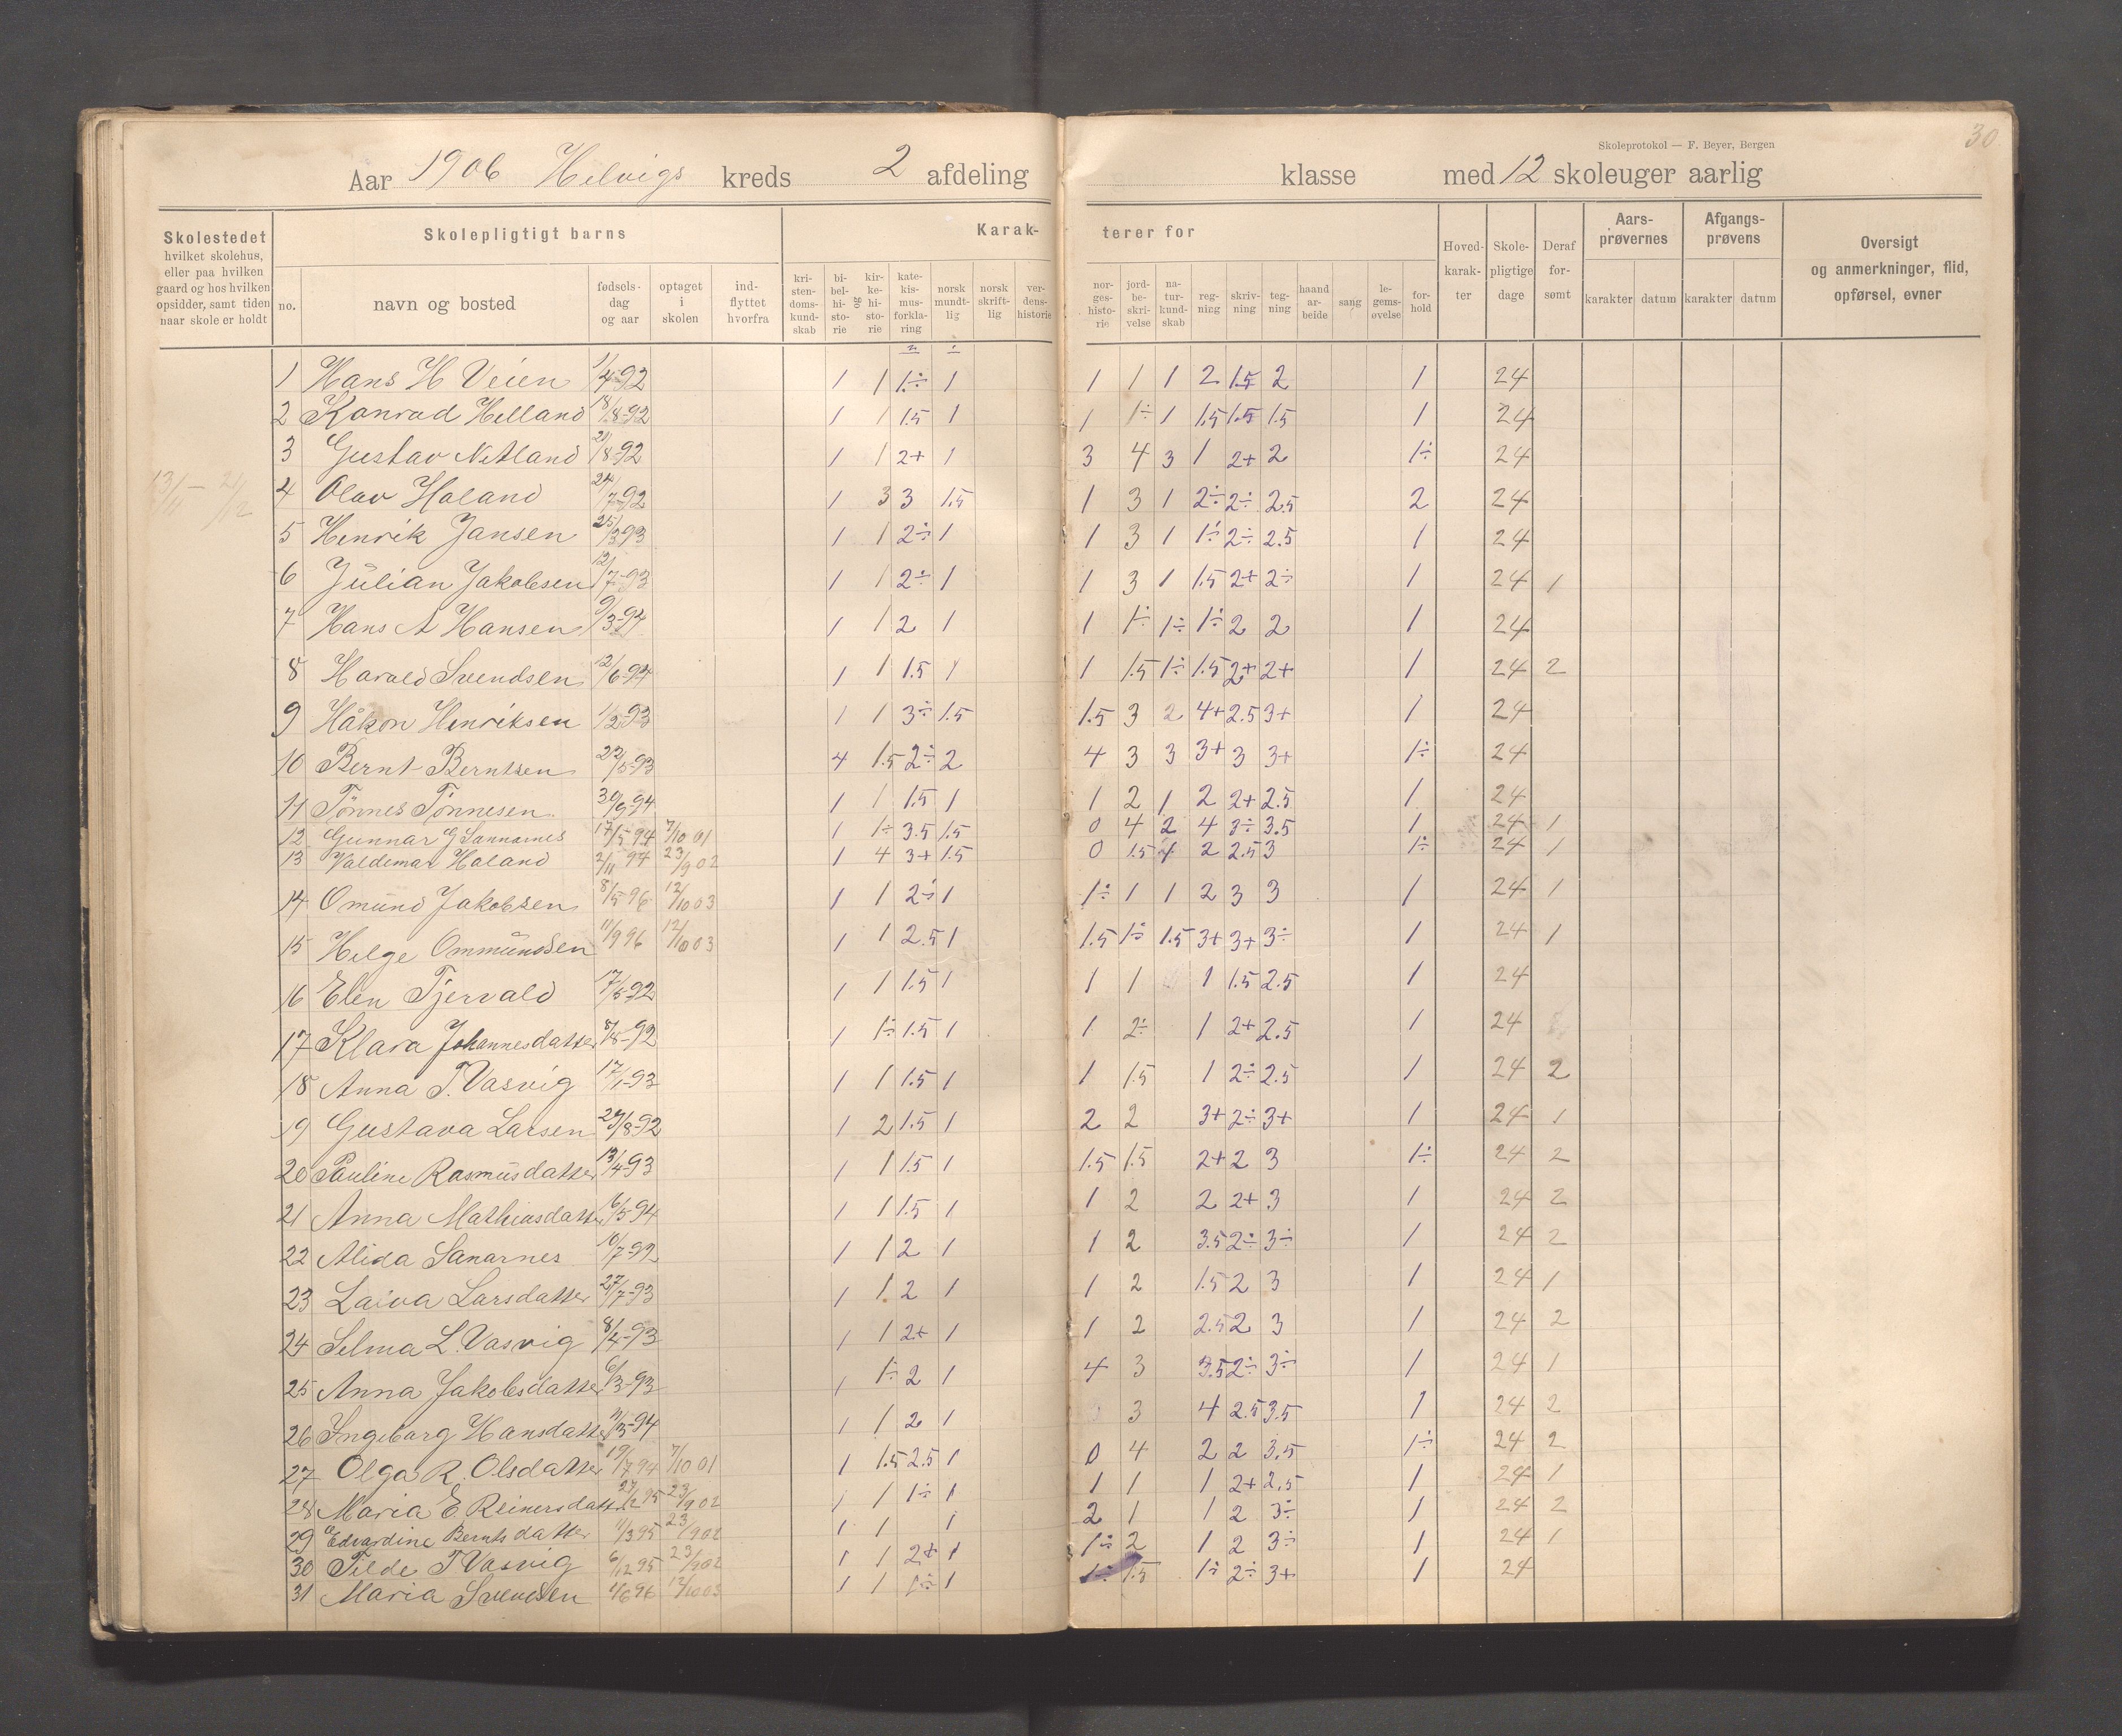 Skoleprotokol — F. Beyer, Bergen
30
Aar 1906 Helvigs kreds 2 afdeling klasse med 12 skoleuger aarlig
Skolestedet hvilket skolehus, eller paa hvilken gaard og hos hvilken opsidder, samt tiden naar skole er holdt
Skolepligtigt barns
Karak- terer for
no. navn og bosted fødsels- dag og aar optaget i skolen ind- flyttet hvorfra
kri- sten- doms- kund- skab bi- bel- hi- sto- rie og kir- ke- hi- sto- rie kate- kis- mus- forkla- ring norsk mundt- lig norsk skrift- lig ver- dens- historie
nor- ges- histo- rie jord- be- skri- velse na- tur- kund- skab reg- ning skriv- ning teg- ning haand ar- beide sang le- gems- øvelse for- hold
Hoved- karak- ter Skole- pligtige dage Deraf for- sømt
Aars- prøvernes karakter datum
Afgangs- prøvens karakter datum
Oversigt og anmerkninger, flid, opførsel, evner
13/11 - 21/12
1 Hans H Veien 1/4-92 1 1 1÷ 1 1 1 1 2 1.5 2 1 24
2 Konrad Helland 18/8-92 1 1 1.5 1 1 1÷ 1 1.5 1.5 1.5 1 24
3 Gustav Netland 21/8-92 1 1 2+ 1 3 4 3 1 2+ 2 1÷ 24
4 Olav Haland 24/7-92 1 3 3 1.5 1 3 1 2÷ 2÷ 2.5 2 24
5 Henrik Jansen 25/3-93 1 1 2÷ 1 1 3 1 1÷ 2÷ 2.5 1 24
6 Julian Jakobsen 12/7-93 1 1 2÷ 1 1 3 1 1.5 2+ 2÷ 1 24 1
7 Hans A Hansen 9/3-94 1 1 2 1 1 1÷ 1÷ 1÷ 2 2 1 24
8 Harald Svendsen 12/6-94 1 1 1.5 1 1 1.5 1÷ 1.5 2+ 2+ 1 24 2
9 Håkon Henriksen 1/2-93 1 1 3÷ 1.5 1.5 3 2 4+ 2.5 3+ 1 24
10 Bernt Berntsen 23/5-93 4 1.5 2÷ 2 4 3 3 3+ 3 3+ 1÷ 24
11 Tönnes Tönnesen 30/9-94 1 1 1.5 1 1 2 1 2 2+ 2.5 1 24
12 Gunnar G Sannarnes 17/5 94 7/10 01 1 1÷ 3.5 1.5 0 4 2 4 3÷ 3.5 1 24 1
13 Valdemar Haland 2/11 94 23/9 02 1 4 3+ 1.5 0 1.5 1 2 2.5 3 1÷ 24 1
14 Omund Jakobsen 8/5-96 12/10 03 1 1 2÷ 1 1÷ 1 1 2 3 3 1 24 1
15 Helge Ommundsen 11/9 96 12/10 03 1 1 2.5 1 1.5 1÷ 1.5 3+ 3+ 3÷ 1 24 1
16 Elen Tjervald 17/5-92 1 1 1.5 1 1 1 1 1.5 2.5 1 24
17 Klara Johannesdatter 8/8-92 1 1÷ 1.5 1 1 2÷ 1 2+ 2.5 1 24
18 Anna T. Vasvig 17/1-93 1 1 1.5 1 1 1.5 1 2÷ 2.5 1 24 2
19 Gustava Larsen 29/8-92 1 2 1.5 1 2 2 3+ 2÷ 3+ 1 24 1
20 Pauline Rasmusdatter 13/4-93 1 1 1.5 1 1.5 1.5 2+ 2 3 1÷ 24 2
21 Anna Mathiasdatter 6/5-94 1 1 1.5 1 1 2 2 2+ 3 1 24 2
22 Alida Sanarnes 10/7-92 1 1 2 1 1 2 3.5 2÷ 3÷ 1 24 2
23 Laiva Larsdatter 27/7-93 1 1 2 1 1 2 1.5 2 3 1 24 1
24 Selma L. Vasvig 8/4-93 1 1 2+ 1 1 2 2.5 2 3 1 24 2
25 Anna Jakobsdatter 6/3-93 1 1÷ 2 1 4 3 3.5 2÷ 3÷ 1 24 1
26 Ingeborg Hansdatter 11/5-94 1 1 2 1 3 4 2.5 3.5 1 24 2
27 Olga R. Olsdatter 19/7 94 7/10 01 1 1.5 2.5 1 0 4 2 2 3.5 1÷ 24 2
28 Maria E Reinersdatter 23/2 95 23/9 02 1 1 1÷ 1 1 1 1 2+ 2.5 1 24 1
29 Edvardine Berntsdatter 11/3 95 23/9 02 1 1 1 2 1 1 2 3÷ 1 24 2
30 Tilde T Vasvig 6/12 95 23/9 02 1 1 2+ 1 1÷ 2 1 2 3÷ 1 24 1
31 Maria Svendsen 4/6 96 12/10 03 1 1 1÷ 1 1÷ 1.5 1÷ 2÷ 3+ 1 24